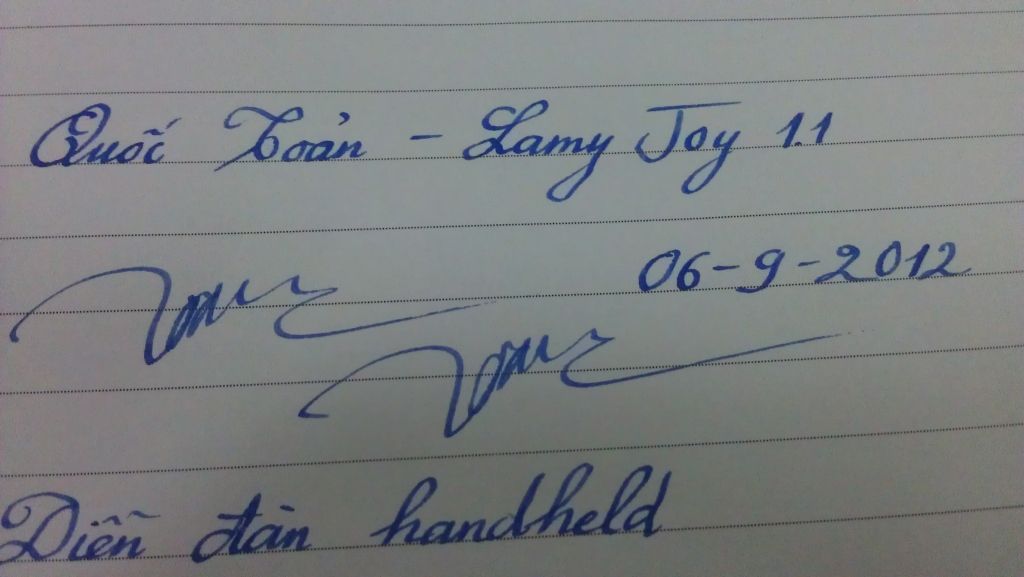 Quốc Toản - Lamy Joy 1.1
06-9-2012
Diễn đàn handheld